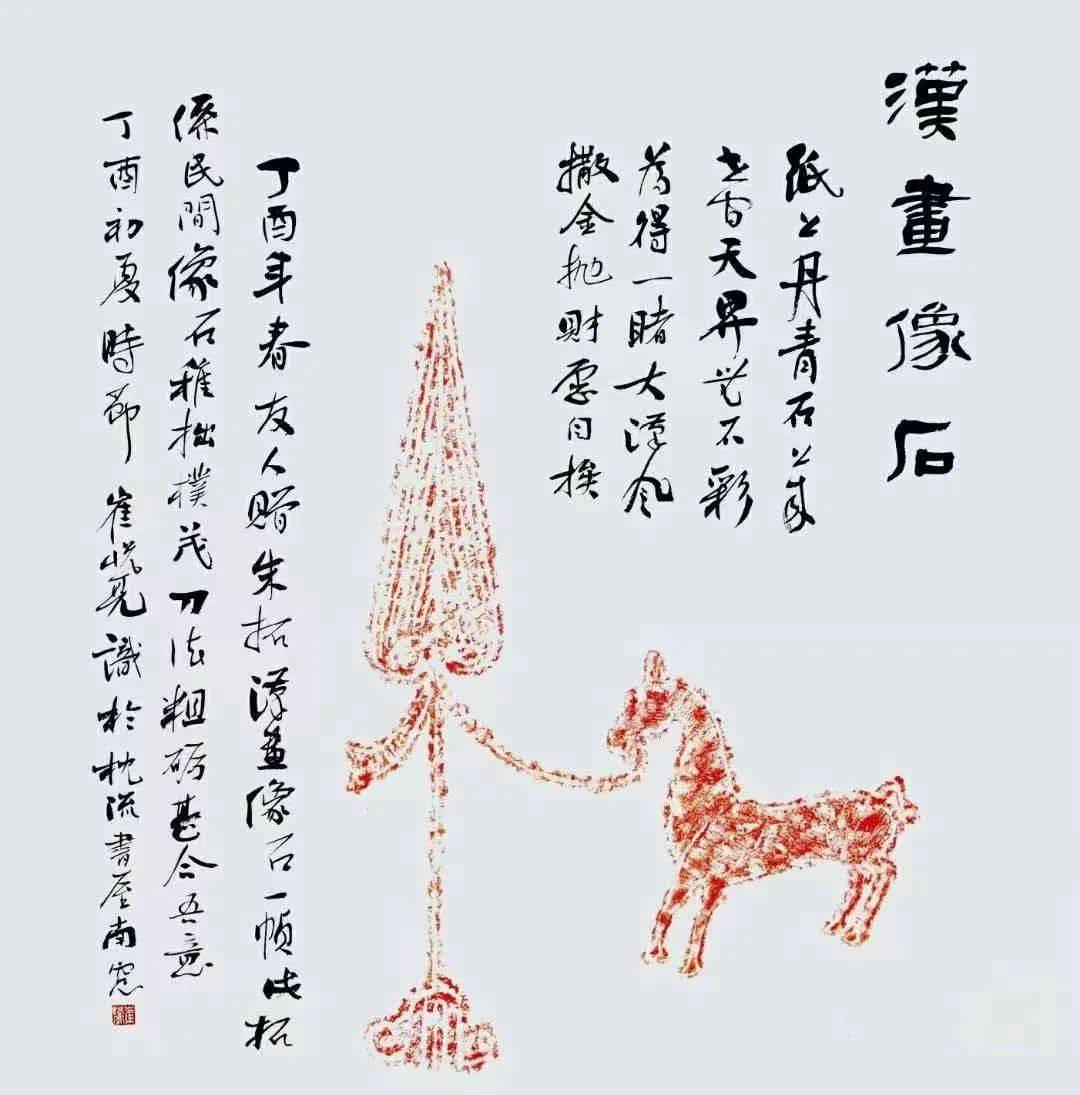 漢畫像石
紙上丹青石上
天界 石彩
為得一睹大漢風
撒金抛財愿自挨
丁酉年春友人贈朱拓漢畫像石一幀此拓
係民間像石稚拙樸茂刀法粗砺甚合吾意
丁酉初夏時節 崔悦亮識於枕流書屋南窓